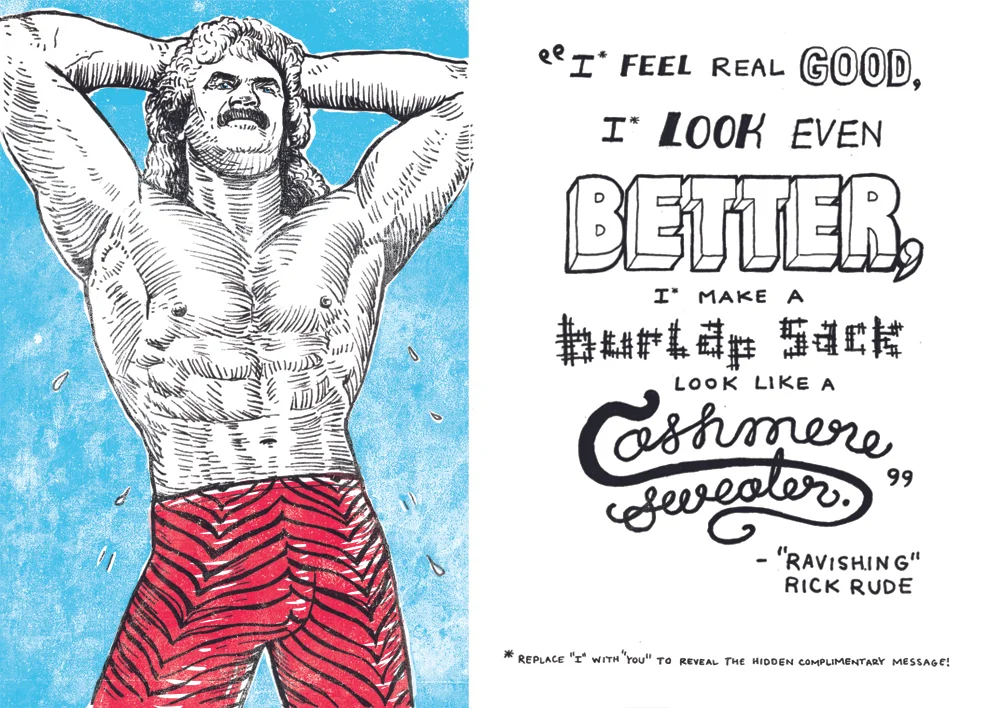 “I* FEEL REAL GOOD,
I* LOOK EVEN
BETTER,
I* MAKE A
burlap sack
LOOK LIKE A
Cashmere
sweater.”
- "RAVISHING"
RICK RUDE
* REPLACE "I" WITH "YOU" TO REVEAL THE HIDDEN COMPLIMENTARY MESSAGE!